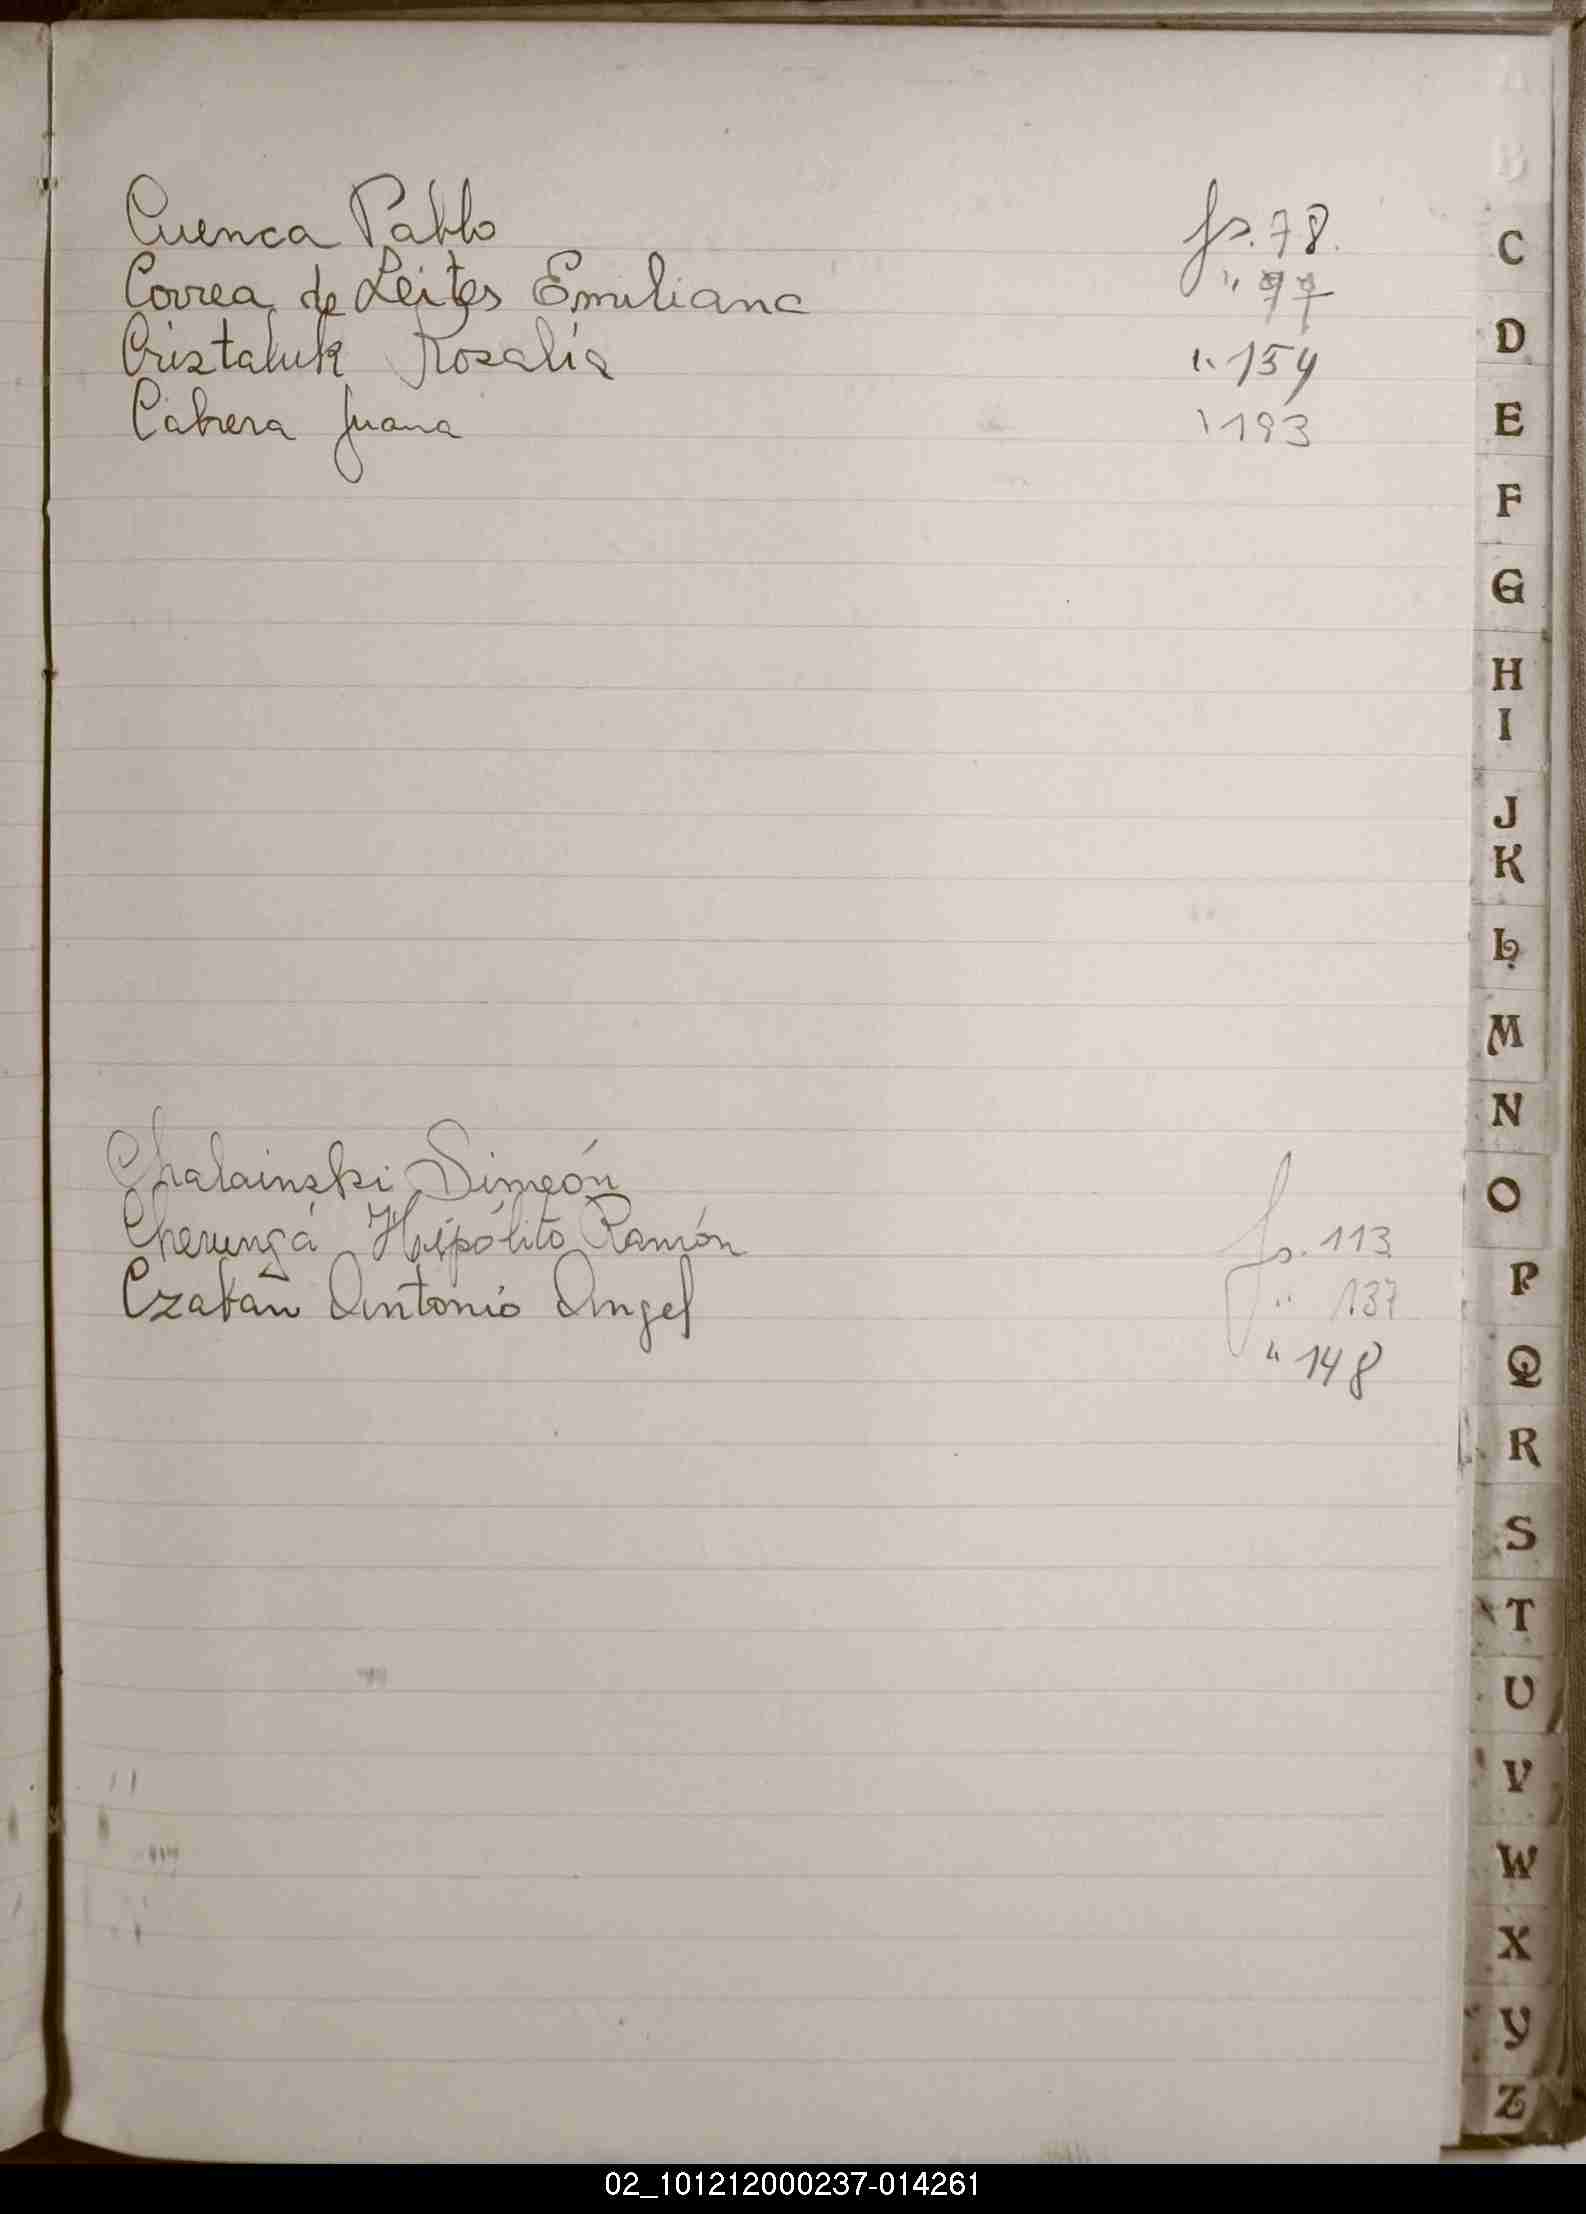 Cuenca Pablo fs. 78.
Correa de Leites Emiliana " 97
Cristaluk Rosalia " 154
Cabrera Juana " 193
Chalainski Simeón fs. 113
Cherungá Hipólito Ramón " 137
Czaban Antonio Angel " 148
A
B
C
D
E
F
G
H
I
J
K
L
M
N
O
P
Q
R
S
T
U
V
W
X
Y
Z
02_101212000237-014261